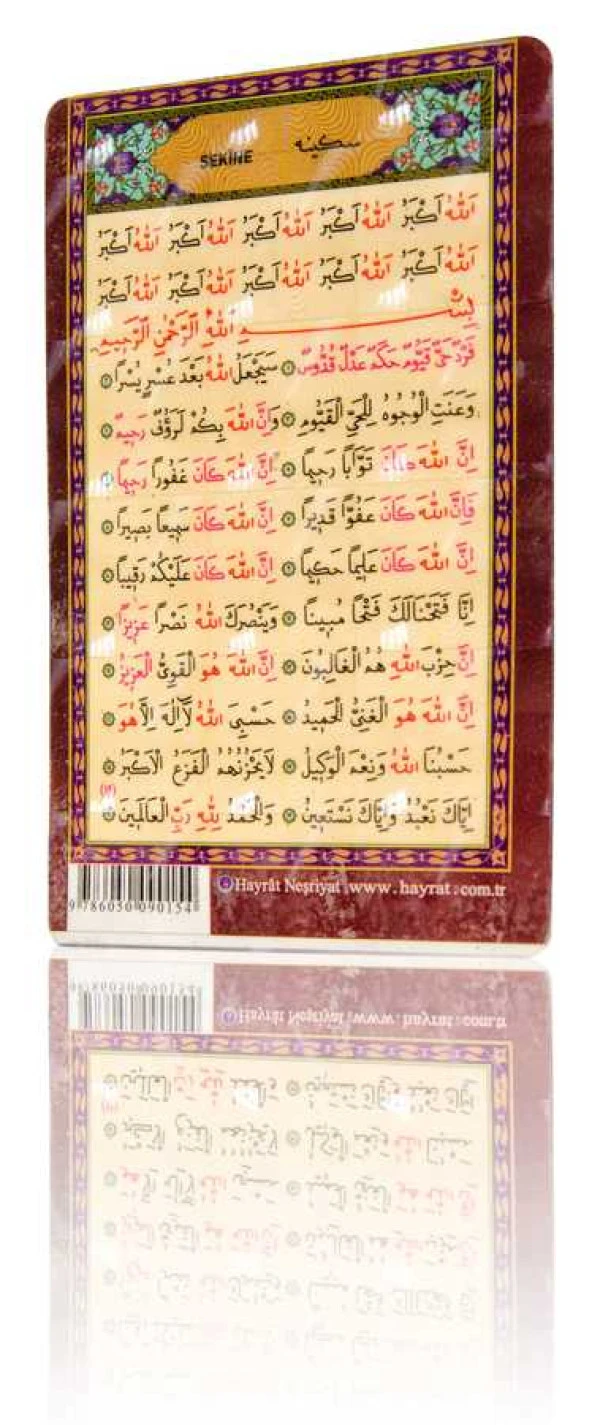 SEKİNE سكينه
اَللّٰهُ اَكْبَرُ اَللّٰهُ اَكْبَرُ اَللّٰهُ اَكْبَرُ اَللّٰهُ اَكْبَرُ اَللّٰهُ اَكْبَرُ
اَللّٰهُ اَكْبَرُ اَللّٰهُ اَكْبَرُ اَللّٰهُ اَكْبَرُ اَللّٰهُ اَكْبَرُ اَللّٰهُ اَكْبَرُ
بِسْمِ اللّٰهِ الرَّحْمٰنِ الرَّحِيمِ
فَرْدٌ حَيٌّ قَيُّومٌ حَكَمٌ عَدْلٌ قُدُّوسٌ ۞ سَيَجْعَلُ اللّٰهُ بَعْدَ عُسْرٍ يُسْرًا ۞
وَعَنَتِ الْوُجُوهُ لِلْحَىِّ الْقَيُّومِ ۞ وَاِنَّ اللّٰهَ بِكُمْ لَرَؤُفٌ رَحِيمٌ ۞
اِنَّ اللّٰهَ كَانَ تَوَّابًا رَحِيمًا ۞ اِنَّ اللّٰهَ كَانَ غَفُورًا رَحِيمًا ۞
فَاِنَّ اللّٰهَ كَانَ عَفُوًّا قَدِيرًا ۞ اِنَّ اللّٰهَ كَانَ سَمِيعًا بَصِيرًا ۞
اِنَّ اللّٰهَ كَانَ عَلِيمًا حَكِيمًا ۞ اِنَّ اللّٰهَ كَانَ عَلَيْكُمْ رَقِيبًا ۞
اِنَّا فَتَحْنَا لَكَ فَتْحًا مُبِينًا ۞ وَيَنْصُرَكَ اللّٰهُ نَصْرًا عَزِيزًا ۞
اِنَّ حِزْبَ اللّٰهِ هُمُ الْغَالِبُونَ ۞ اِنَّ اللّٰهَ هُوَ الْقَوِىُّ الْعَزِيزُ ۞
اِنَّ اللّٰهَ هُوَ الْغَنِىُّ الْحَمِيدُ ۞ حَسْبِىَ اللّٰهُ لَٓا اِلٰهَ اِلَّا هُوَ ۞
حَسْبُنَا اللّٰهُ وَنِعْمَ الْوَكِيلُ ۞ لَا يَحْزُنُهُمُ الْفَزَعُ الْاَكْبَرُ ۞
اِيَّاكَ نَعْبُدُ وَاِيَّاكَ نَسْتَعِينُ ۞ وَالْحَمْدُ لِلّٰهِ رَبِّ الْعَالَمِينَ ۞
Hayrât Neşriyat www.hayrat.com.tr
9 786050 090154